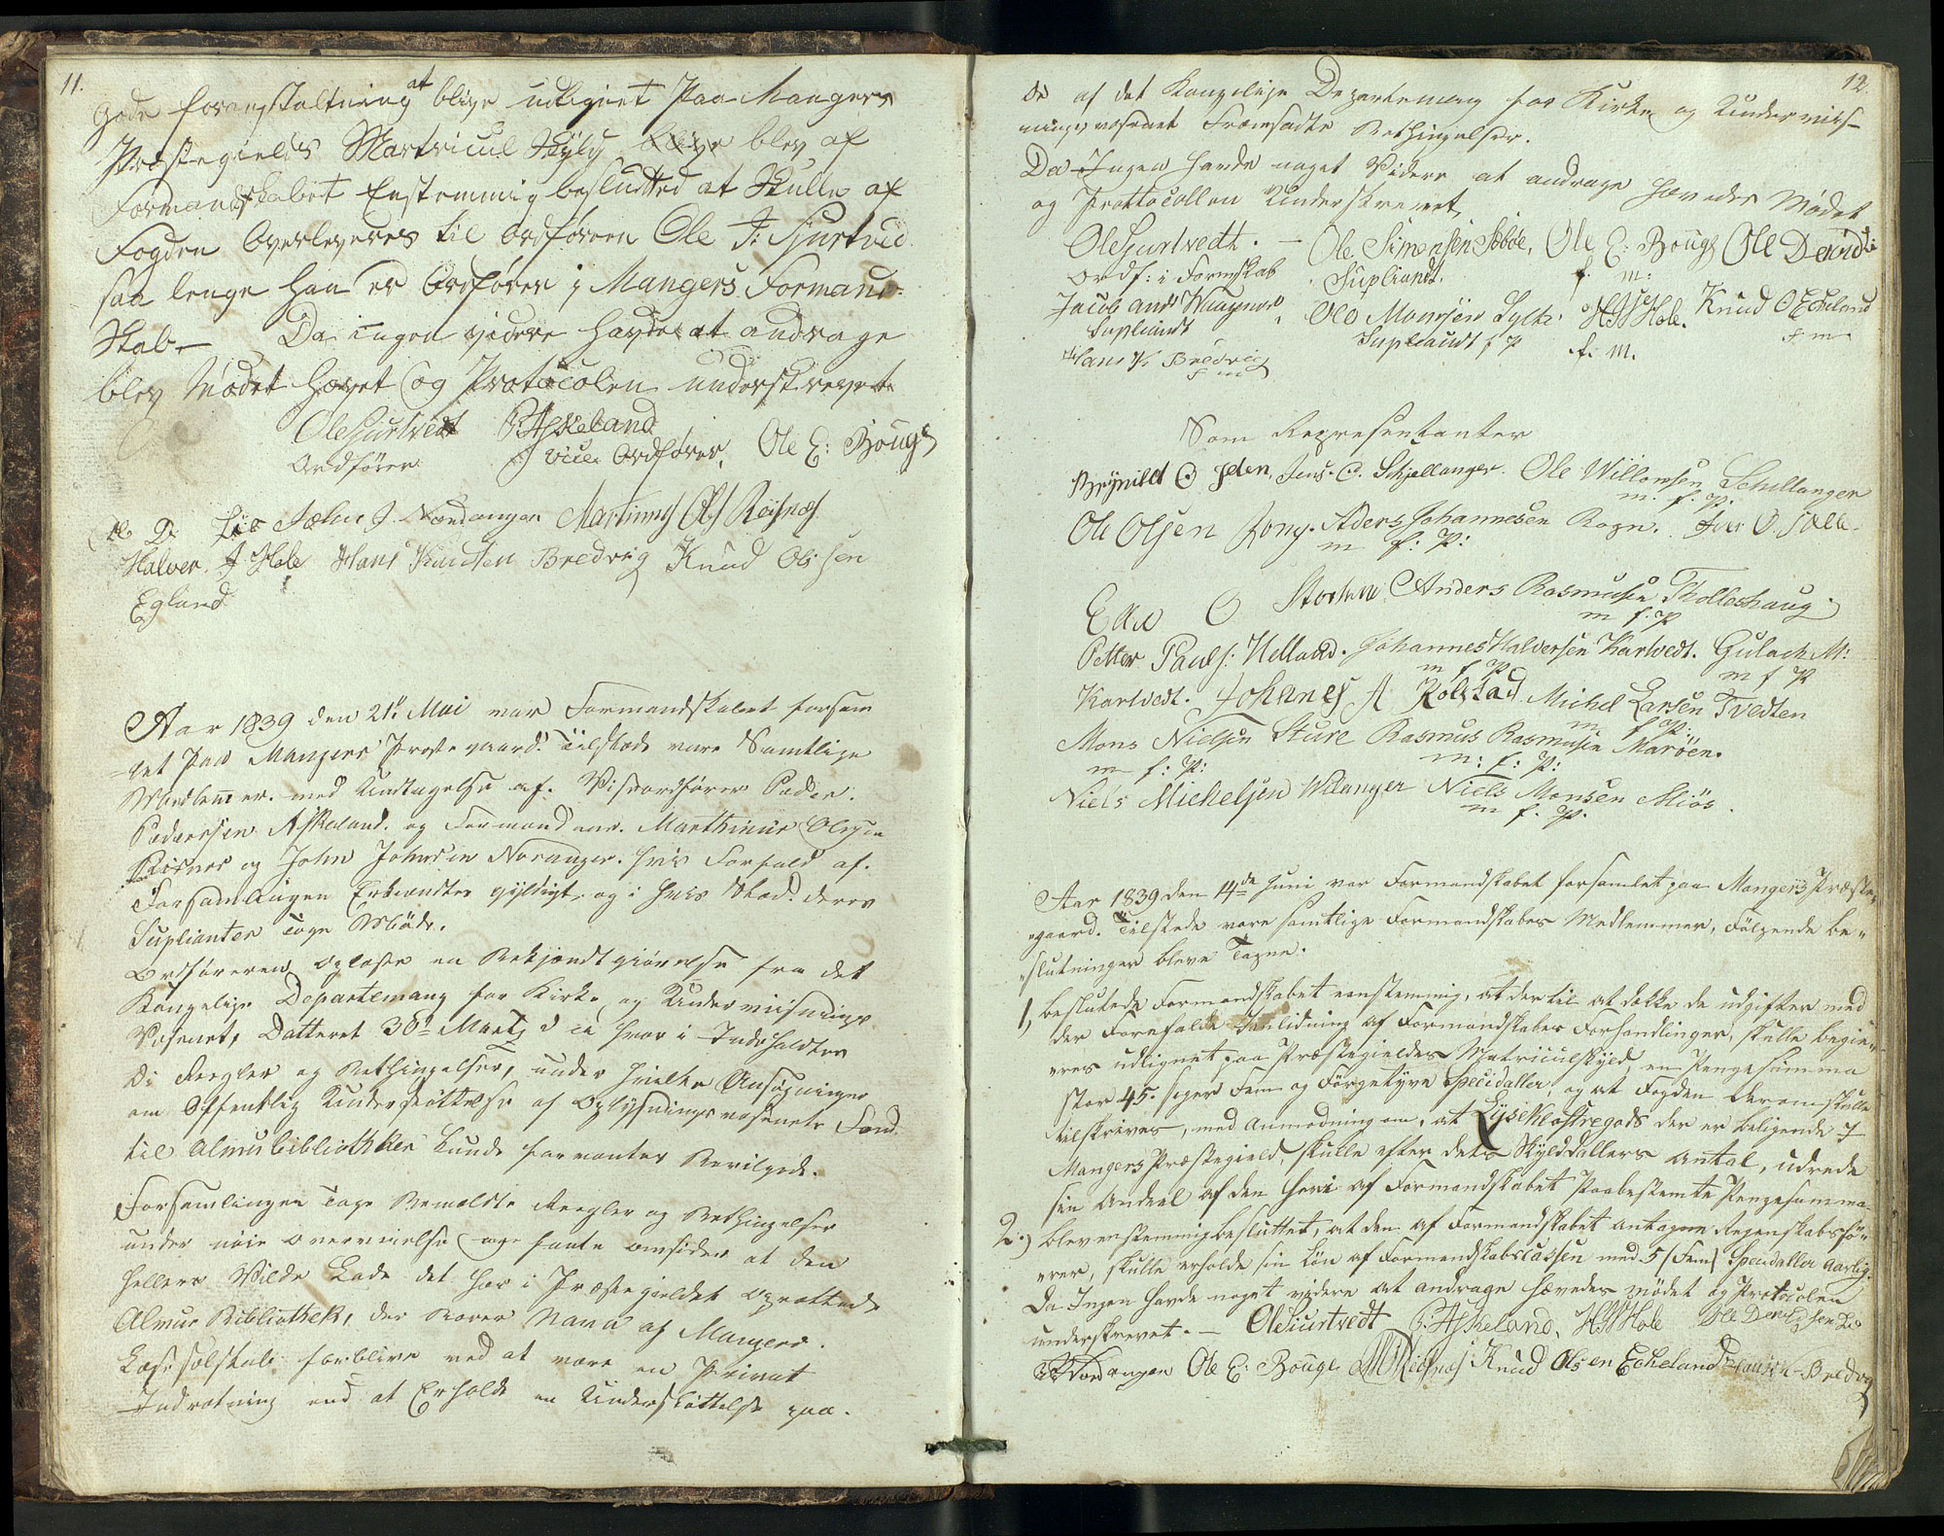 11.
gode foranstaltning at blive udlignet Paa Mangers
Præstegields Martricul Skyly blive blev af
Formandskabet Enstemmig beslutted at Skulle af
Fogden Overleveres til Ordføren Ole J: Sjurtved
saa lenge han er Ordfører i Mangers Formand-
Skab – Da ingen videre havde at andrage
blev Mødet hævet og Protocolen underskrevet
Ole Sjurtvedt P. Askeland
Ordfører vice Ordfører, Ole E: Bouge
Ole D. Lie John J. Nordanger Martinus Ols Risnes
Halver J Hole Hans Knuten Bredvig Knud Olssen
Egland
Aar 1839 den 21de Mai var Formandskabet forsam
let Paa Mangers Præstegaard. Tilstæde vare Samtlige
Medlemer. med Undtagelse af. Viseordfører Peder.
Pedersen Askeland. og Formændene. Marthinus Olsen
Risnes og John Johnsen Noranger. hvis Forfald af.
Forsamlingen Erkiendtes gyldigt. og i hvis Stæd. deres
Suplianter Toge Møde.
Ordføreren oplæste en Bekjendtgiørelse fra det
Kongelige Departemang for Kirke og Underviisnings
Væsenet, Datteret 30d Martz d. a. hvor i Indeholdtes
De Regler og Betingelser, under hvilke Ansøgninger
om Offentlig Understøttelse af Oplysningsvæsenets Fond
til Almuebibliothker kunde forventes Bevilgede.
Forsamlingen Toge Bemældte Regler og Betingelser
under nøie overveielse og fante omsider at den
hellere Vilde Lade det her i Præstegieldet oprettede
Almue Bibliothek, der bærer Navn af Mangers.
Læse selskab forblive ved at være en Privat
Indretning end at Erholde en Understøttelse paa.
12.
de af det Kongelige Departemang for Kirke og Underviis-
ningsvæsenet Fremsadte Betingelser.
Da Ingen havde noget Videre at andrage hævedes Mødet
og Prottocollen Underskrevet,
Ole Sjurtvedt. – Ole Simensen Bøe, Ole E: Bouge Ole David
Ordf: i Formskab Supliandt. f. m:
Jacob And Ole Monsen Sylte HJHole. Knud O Echeland
Supliandt Supleandt f P f. M. f m
Hans K. Bredvig
f m
Som Representanter
Brynild O Isten, Jens. O. Schjellanger. Ole Willomsen Schellanger
m. f. P.
Ole Olsen Fony. Aders Johannesen Rogn. Iver O. Sæle.
m f: P:
Elle O Storheim Anders Rasmusen Tholleshaug
m f. P
Petter Pauls: Helland. Johannes Halversen Kartvedt. Gulach M:
m f P m f P
Kartvedt. Johanes A Kolstad Michel Larsen Tvedten
m f P.
Mons Nielsen Sture Rasmus Rasmusen Marøen.
m f: P: m: f: P:
Niels Michelsen Wilanger Niels Monsen Miøs.
m f. P.
Aar 1839 den 14de Juni var Formandskabet forsamlet paa Mangers Præste
gaard. Tilstede vare samtlige Formandskabes Medlemmer, Følgende be-
slutninger bleve Tagne.
1, besluttede Formandskabet eenstemmig, at der til at dække de udgifter med
der Forefalde i Anledning af Formandskabes Forhandlinger, skulle begiæ-
eres udlignet paa Præstegieldes Matriculskyld, en Pengesumma
stor 45. siger Fem og Førgetyve Specidaller, og at Fogden derom skulle
tilskrives, med Anmodning om, at Lyseklostregods der er beligende i
Mangers Præstegield, skulle efter dets Skylddallers Antal, udrede
sin Andeel af den heri af Formandskabet Paabestemte Pengesumma
2.) blev enstemmig besluttet, at den af Formandskabet antagne Regenskabsfø-
rer, skulle erholde sin Løn af Formandskabscassen med 5 (Fem) Specidaller Aarlig.
Da Ingen havde noget videre at andrage hævedes Mødet og Protocolen
underskrevet. – Ole Siurtvedt P. Askeland, HJHole Ole Davidsen Lie
Nordanger Ole E: Bouge MORisnes Knud Olsen Echeland Hans K Bredvig